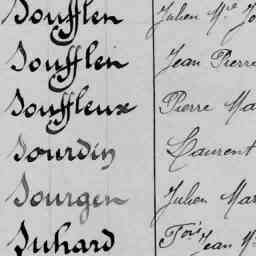 Soufflen Julien Mie Jo
Soufflen Jean Pierre
Souffleux Pierre Ma
Sourdin Laurent
Sourgen Julien Mar
Suhard Fois Jean M